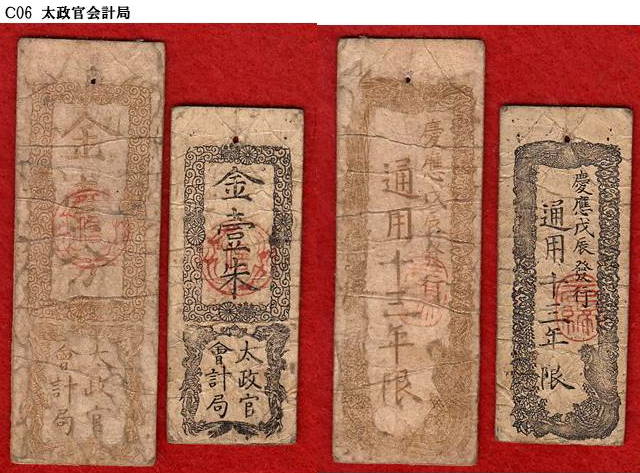 C06 太政官会計局
金壹分
太政官
會計局
金壹朱
太政官
會計局
慶應戊辰發行
通用十三年限
慶應戊辰發行
通用十三年限